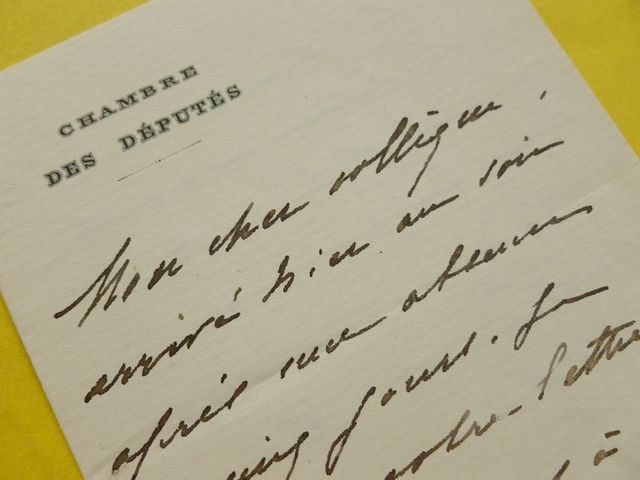 CHAMBRE
DES DÉPUTÉS
Mon cher collègue,
arrivé hier au soir
après une absence
cinq jours. Je
votre lettre
à